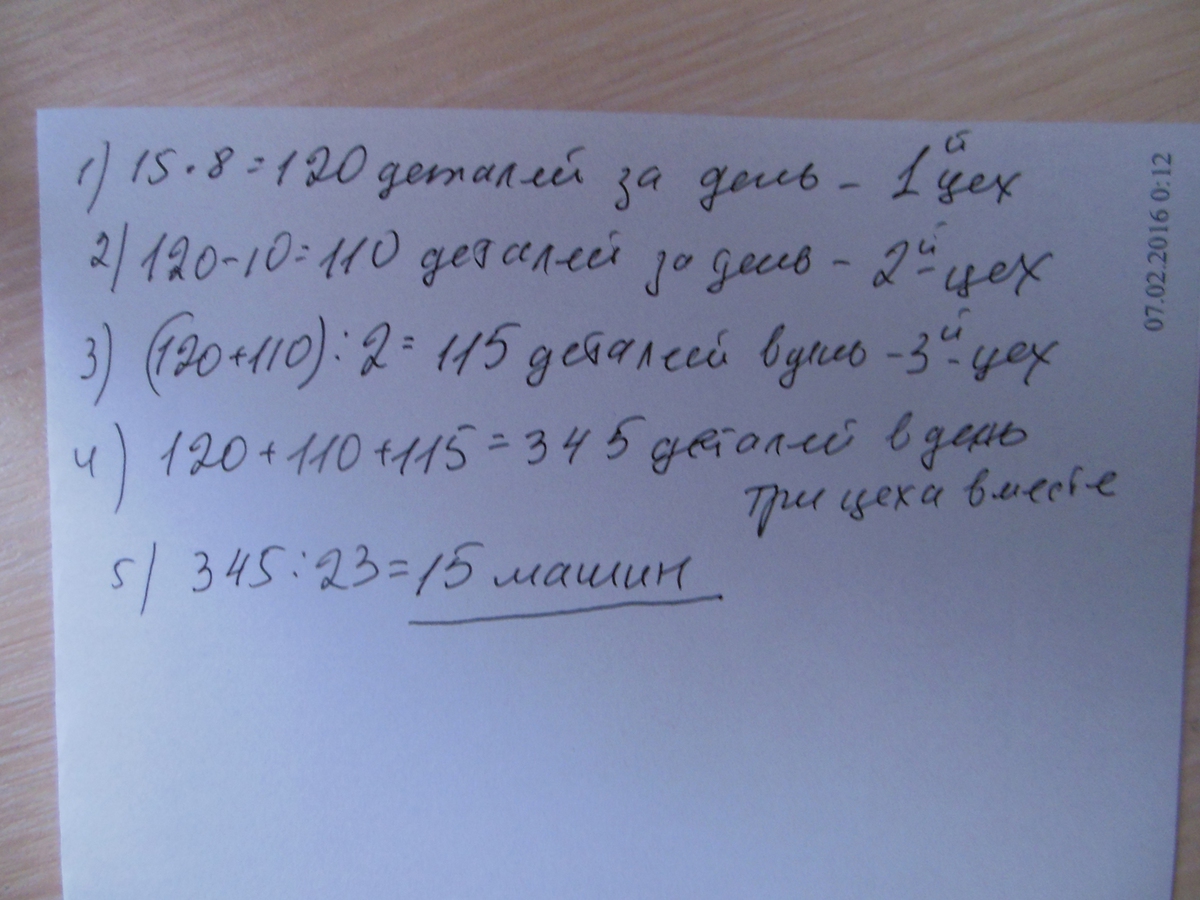 1) 15·8=120 деталей за день - 1й цех
2) 120-10=110 деталей за день - 2й цех
3) (120+110):2= 115 деталей в день - 3й цех
4) 120+110+115=345 деталей в день
три цеха вместе
5) 345:23=15 машин
07.02.2016 0:12